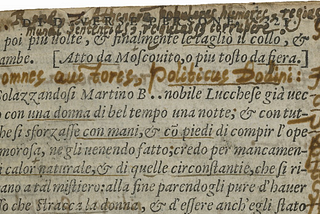 poi piu uolte, & finalmente le taglio il collo, &
ambe. [Atto da Moscouito, o piu tosto da fiera.]
omnes auctores, Politicus Bodini:
Solazzandosi Martino B.. nobile Lucchese già uec
o con una donna di bel tempo una notte; & con tut-
che si sforzasse con mani, & cō piedi di compir l'ope
morosa, ne gli uenendo fatto; credo per mancamen-
i calor naturale, & di quelle circonstantie, che si ri-
ano a tal mistiero; alla fine parendogli pure d'hauer
so che stracca la donna, & d'essere anch'egli stato